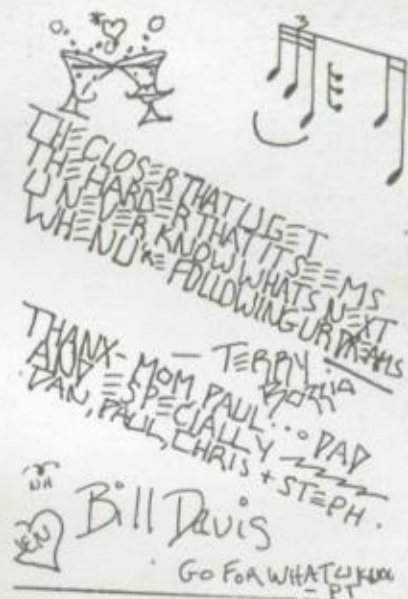 3
THE CLOSER THAT U GET
THE HARDER THAT IT SEEMS
U NEVER KNOW WHATS NEXT
WHEN U'RE FOLLOWING UR DREAMS
— TERRY BOZZIO
THANX - MOM PAUL... DAD
AND ESPECIALLY
DAN, PAUL, CHRIS + STEPH.
Bill Davis
GO FOR WHAT U KNOW
- PT